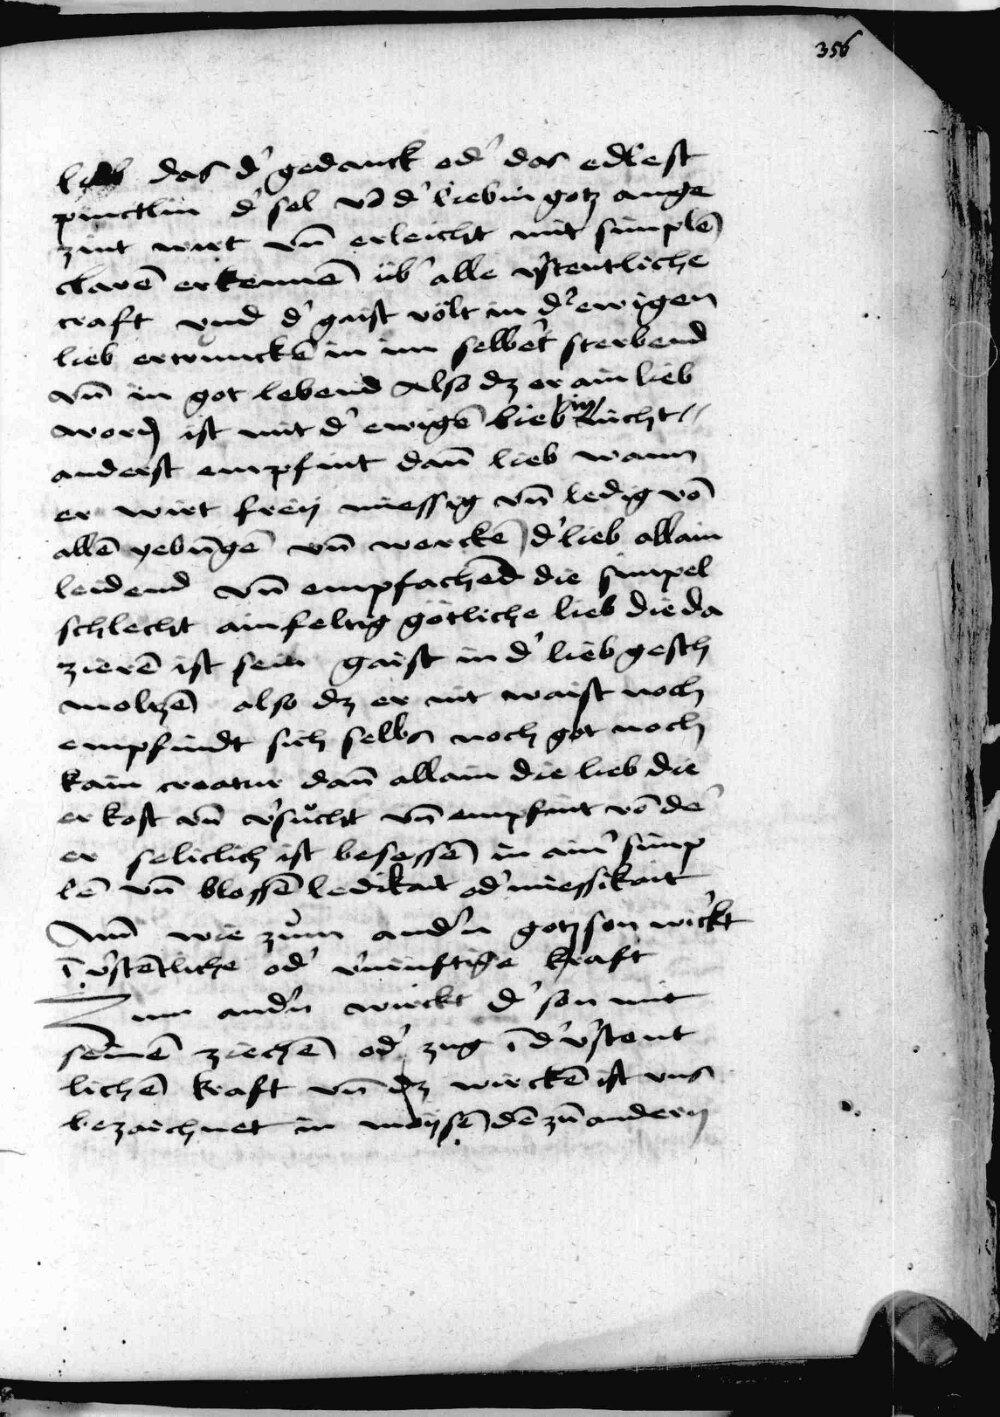 356
lieb das d' gedanck od' das edlest
pünctlin d' sel vō d' lieb in gotz ange
zint wirt vn̄ erleicht mit simplē
clarē erkennē üb' alle v'stentliche
craft vnd d' gaist völt in d' ewigen
lieb ertrunckē in im selbe't sterbend
vn̄ in got lebend Also dz er ain lieb
word ist mit d' ewigē lieb nicht
anderst empfint dan̄ lieb wann
er wirt freÿ miessig vn̄ ledig vō
allē yebūngē vn̄ werckē d' lieb allain
leidend vn̄ empfachend die simpel
schlecht ainfeltig götliche lieb die da
zierē ist sein gaist in d' lieb gesch
moltzē also dz er nit waist noch
empfindt sich selbs noch got noch
kain creatur dan̄ allain die lieb die
er kost vn̄ v'sücht vn̄ empfint vō de'
er seliclich ist besessē in ain' simp
lē vn̄ blossē ledikait od' miessikait
Nun̄ wie zum and'n gotz son wirckt
ī v'stētliche od' v'nünftige kraft
Zum and'n wirckt d' son mit
seinē ziechē od' zug ī d' v'stent
lichē kraft vn̄ dz wirckē ist vns
bezaichnet in moÿsē dē zū andern